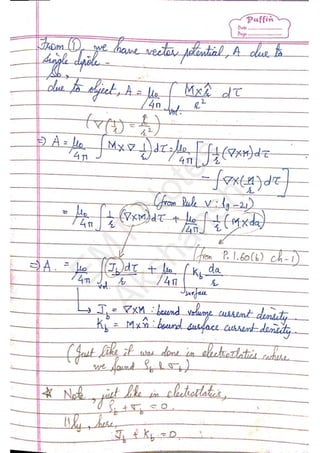 Puffin
Date
Page
From ①, we have vector potential, A due to
single dipole -
So,
due to object, A = μ₀/4π ∫vol. M×r̂/r² dτ
(∇(1/r) = r̂/r²)
⇒ A = μ₀/4π ∫ M×∇ 1/r dτ = μ₀/4π [∫ 1/r (∇×M)dτ
- ∫ ∇×(M/r) dτ]
(from Rule V: Pg-21)
= μ₀/4π ∫ 1/r (∇×M)dτ + μ₀/4π ∫ 1/r (M×da)
(from P. 1.60(b) ch-1)
⇒ A = μ₀/4π ∫vol (J_b)dτ/r + μ₀/4π ∫surface K_b da/r
↳ J_b = ∇×M : bound volume current density.
K_b = M×n̂ : bound surface current density.
(Just like it was done in electrostatics where
we found ρ_b & σ_b)
* Note, just like in electrostatics,
ρ_b + σ_b = 0.
||ly, here,
J_b + K_b = 0.